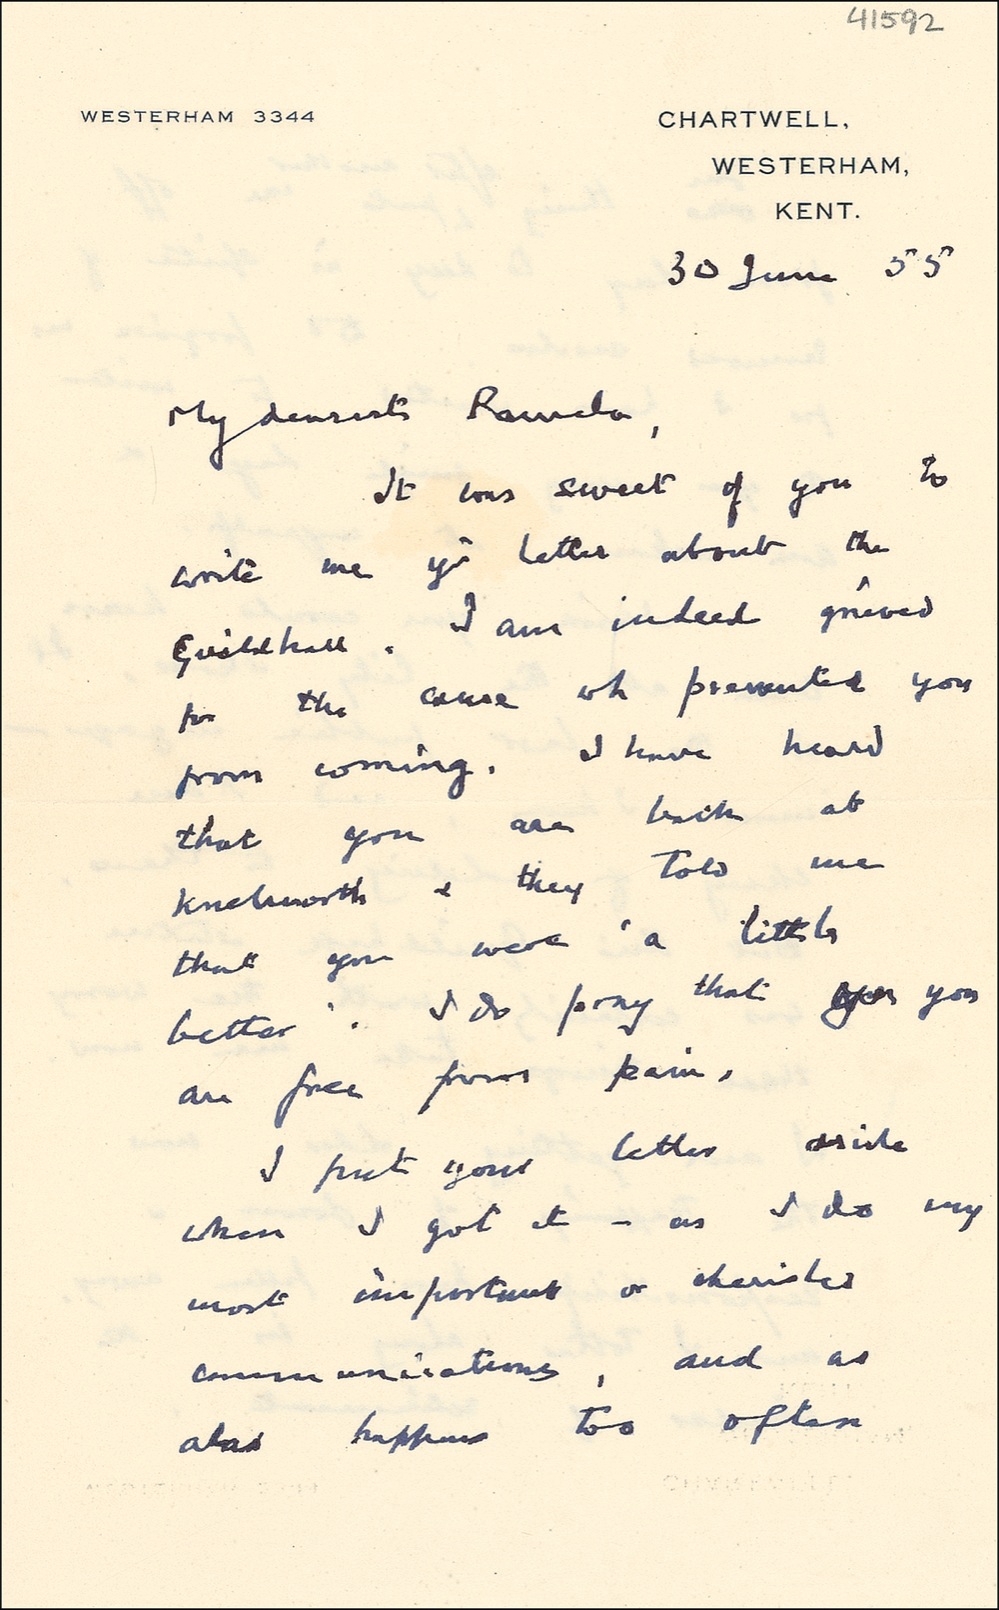 41592
WESTERHAM 3344
CHARTWELL,
WESTERHAM,
KENT.
30 June 55
My dearest Pamela,
It was sweet of you to
write me yr letter about the
Guildhall. I am indeed grieved
for the cause wh prevented you
from coming. I have heard
that you are back at
Knebworth & they told me
that you were 'a little
better'. I do pray that you
are free from pain.
I put your letter aside
when I got it – as I do my
most important or cherished
communications, and as
alas happens too often